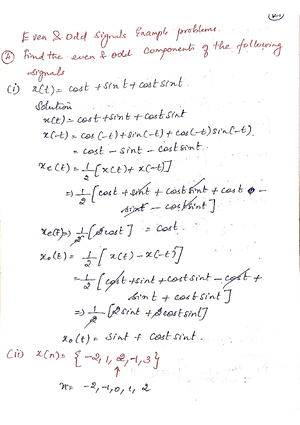 Even & Odd Signals Example problems.
① Find the even & odd components of the following
signals
(i) x(t) = cost + sint + cost sint.
Solution
x(t) = cost + sint + cost sint
x(-t) = cos(-t) + sin(-t) + cos(-t) sin(-t).
= cost - sint - cost sint.
xe(t) = 1/2 [x(t) + x(-t)]
=> 1/2 [cost + sint + cost sint + cost -
sint - cost sint]
xe(t) => 1/2 [2cost] = cost.
xo(t) = 1/2 [x(t) - x(-t)]
= 1/2 [cost + sint + cost sint - cost +
sint + cost sint]
=> 1/2 [2sint + 2cost sint]
xo(t) = sint + cost sint.
(ii) x(n) = {-2, 1, 2, -1, 3}
↑
n = -2, -1, 0, 1, 2